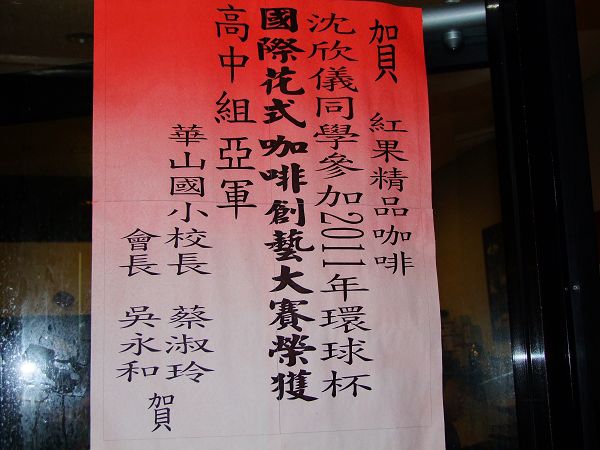 賀 紅果精品咖啡
沈欣儀同學參加2011年環球杯
國際花式咖啡創藝大賽榮獲
高中組亞軍
華山國小校長 蔡淑玲
會長 吳永和
賀